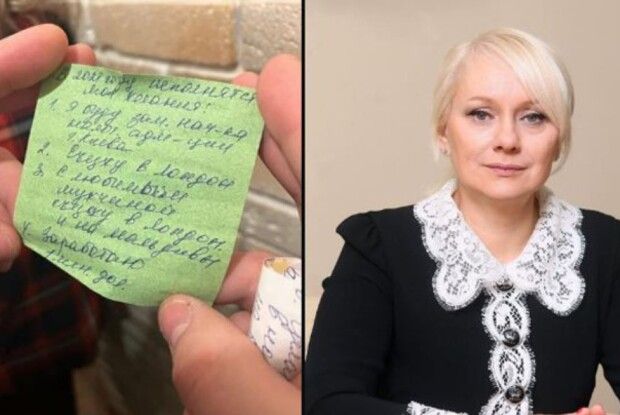 В году исполнятся
мои желания:
1. Я буду зам. нач-ка
адм-ции
г. Киева
2. Съезжу в Лондон
3. С любимым
мужчиной
съезжу в Лондон
и на Мальдивы
4. Заработаю
млн дол.